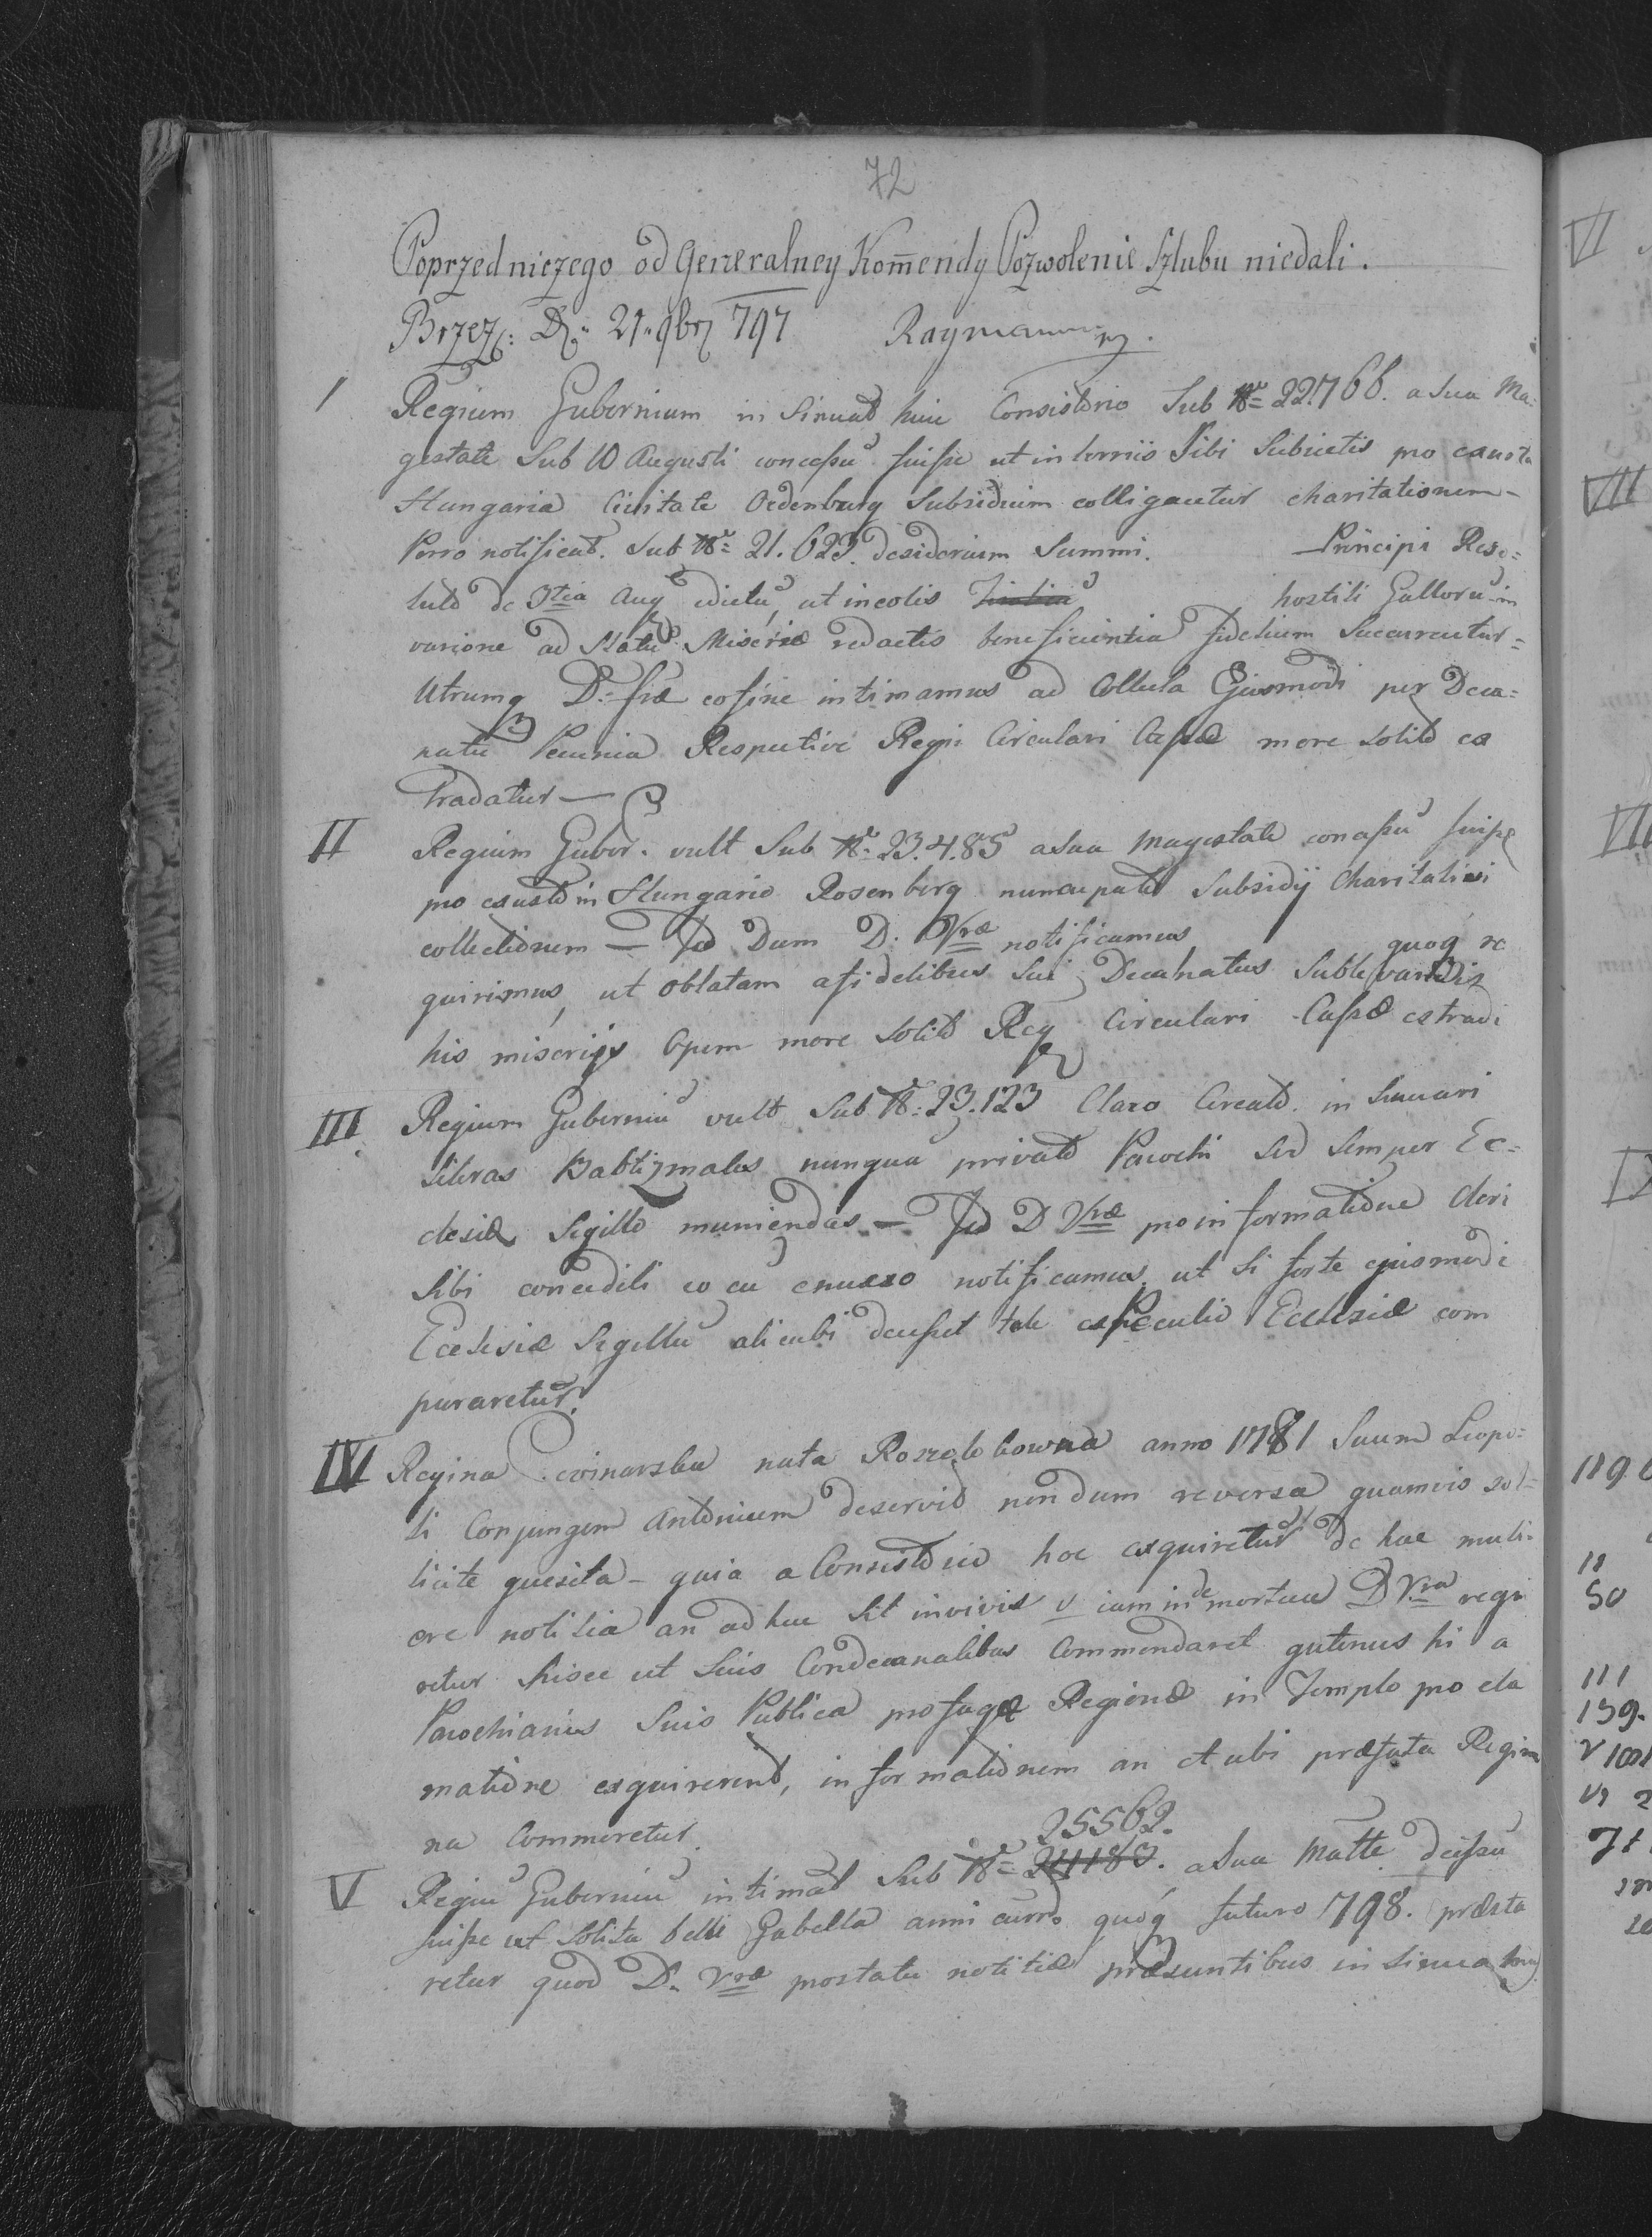 72
Poprzedniczego od Generalney Kom̃endy Pozwolenie Szlubu niedali.
Brzez: D: 21 9br 797 Raymann
I Regium Gubernium in Sinuat huic Consistorio Sub N= 22.766. a Sua Ma-
gestate Sub 10 Augusti concessu fuisse ut in terriis Sibi Subiectis pro exusta
Hungaria Civitate Oedenburg Subsidium colligantur charitationem-
Porro notificat. Sub N= 21.623. desiderium Summi. Principi Reso=
luto de 3tia Aug edictu, ut incolis hostili Galloru in
varione ad Statu Miseriæ redactis beneficientia fidelium Succurrentur=
Utrumq D. fræ cofine intimamus ad Collecta Ejusmodi per Deca=
natu Pecunia Respective Regii Circulari Cassæ more solito ex
tradatur —
II Regium Guber. vult Sub N: 23.485 a Sua Magestate concessu fuisse
pro exusto in Hungario Rosenberg nuncupato Subsidij Charitativi
collectionem — Id Dum D. Vræ notificamus quoq re
quirimus, ut oblatam a fidelibus Sui Decanatus Sublevandis
his miserijs Opem more Solito Reg Circulari Cassæ extradi
III Regium Guberniu vult Sub N: 23.123 Claro Creato. in Sinuari
literas Babtizmales nunqua privato Parochi Sed Semper Ec=
clesiæ Sigillo muniendas — Id D Vræ pro informatione cleri
Sibi concediti eo cu enuxo notificamus, ut Si forte ejusmodi
Ecclesiæ Sigillu alicubi deesset tale ex Peculio Ecclesiæ com
pararetur.
IV Regina nata anno 1781 Suum Leopo=
li Conjungem Antonium deseruit nondum reversa quamvis sol=
licite quesita - quia a Consistorio hoc exquiretur de hac muli=
ere notitia an adhuc Sit in vivis v iam inde mortua D Vra requi
retur hisce ut Suis Condecanalibus Commendaret quatenus hi a
Parochianis Suis Publica profugæ Reginæ in Templo pro cla
matione exquirerent, informationem an et ubi præfata Regina
na Commoretur.
25562.
V Regiu Guberniu intimat Sub N= 24183. a Sua Matte decissu
fuisse ut Solita belli Gabella anni curro quoq futuro 798. præsta
retur quod D. Vræ prostatu notitiæ præsentibus in Sinuamus.
VI
VII